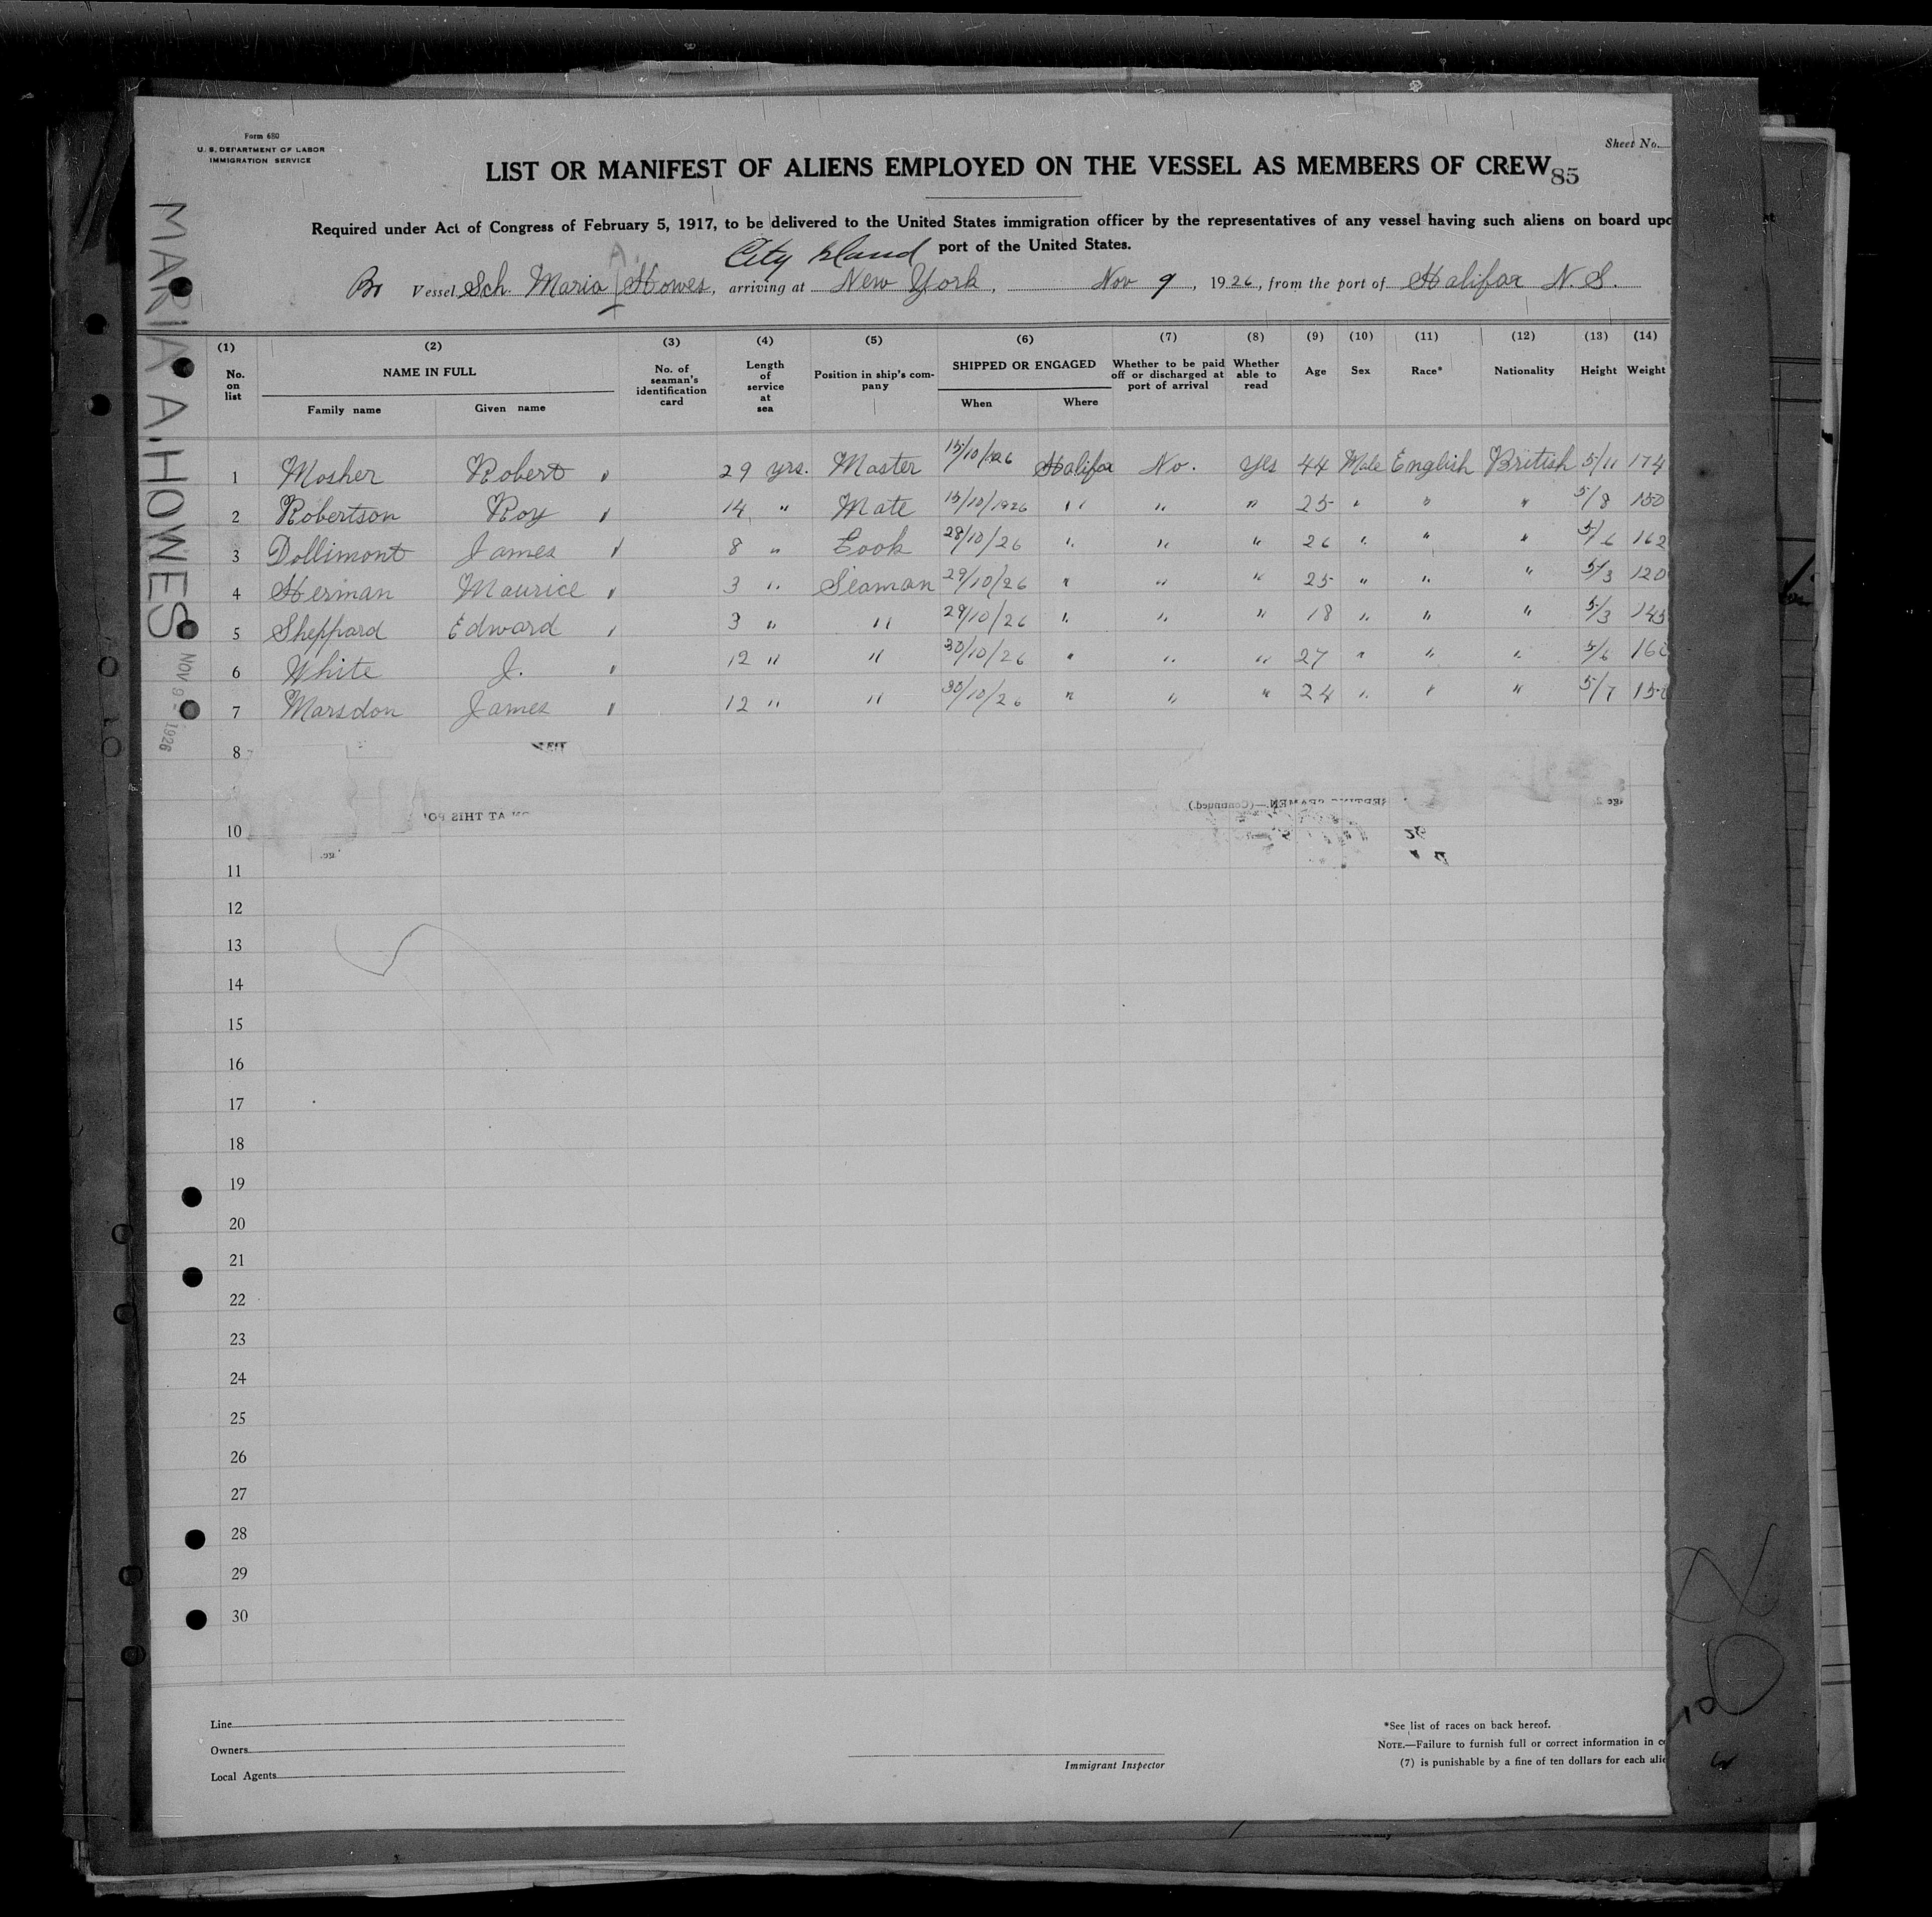 Form 680
U. S. DEPARTMENT OF LABOR
IMMIGRATION SERVICE
Sheet No.
LIST OR MANIFEST OF ALIENS EMPLOYED ON THE VESSEL AS MEMBERS OF CREW
85
Required under Act of Congress of February 5, 1917, to be delivered to the United States immigration officer by the representatives of any vessel having such aliens on board upo
port of the United States.
City Island
A.
Br Vessel Sch. Maria Howes, arriving at New York, Nov 9, 1926, from the port of Halifax N. S.
MARIA A. HOWES
NOV 9 - 1926
(1) (2) (3) (4) (5) (6) (7) (8) (9) (10) (11) (12) (13) (14)
No. on list NAME IN FULL No. of seaman's identification card Length of service at sea Position in ship's company SHIPPED OR ENGAGED Whether to be paid off or discharged at port of arrival Whether able to read Age Sex Race* Nationality Height Weight
Family name Given name When Where
1 Mosher Robert 29 yrs. Master 15/10/26 Halifax No. Yes 44 Male English British 5/11 174
2 Robertson Roy 14 " Mate 15/10/1926 " " " 25 " " " 5/8 150
3 Dollimont James 8 " Cook 28/10/26 " " " 26 " " " 5/6 162
4 Herman Maurice 3 " Seaman 29/10/26 " " " 25 " " " 5/3 120
5 Sheppard Edward 3 " " 29/10/26 " " " 18 " " " 5/3 145
6 White J. 12 " " 30/10/26 " " " 27 " " " 5/6 160
7 Marsdon James 12 " " 30/10/26 " " " 24 " " " 5/7 150
8
10
11
12
13
14
15
16
17
18
19
20
21
22
23
24
25
26
27
28
29
30
Line
Owners
Local Agents
Immigrant Inspector
*See list of races on back hereof.
NOTE.—Failure to furnish full or correct information in c
(7) is punishable by a fine of ten dollars for each alie